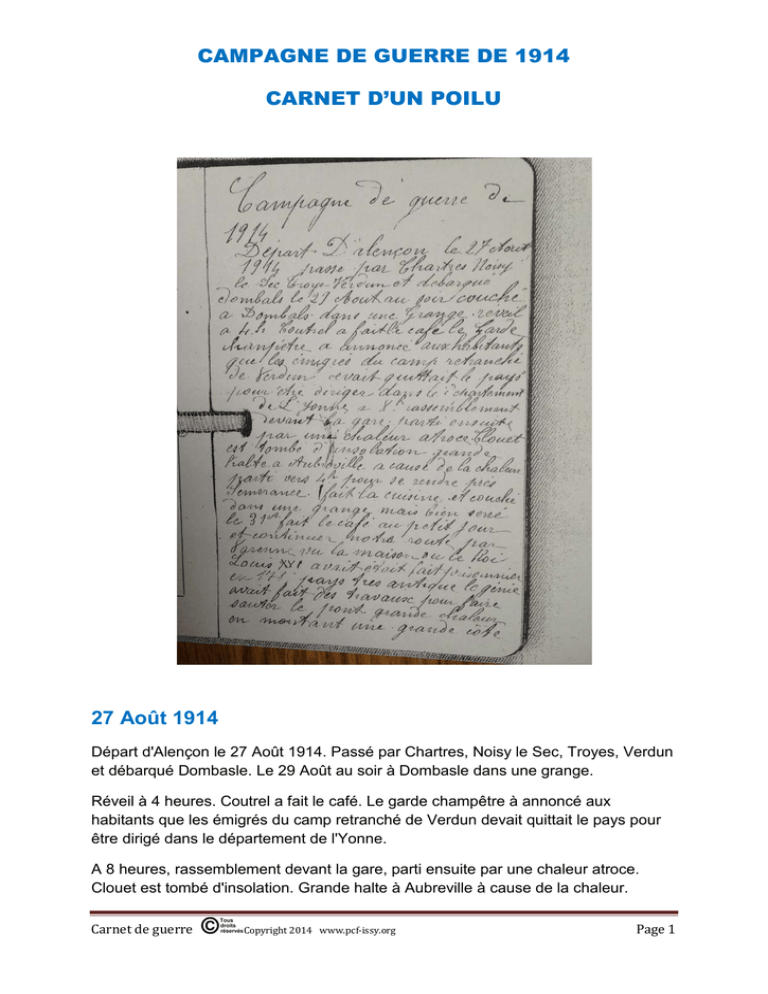 CAMPAGNE DE GUERRE DE 1914
CARNET D'UN POILU
Campagne de guerre de
1914
Départ D'alençon le 27 Aout
1914 passe par Chartres Noisy
le Sec Troye Verdun et débarqué
Dombals le 29 Aout au soir couché
a Dombals dans une grange reveil
a 4h Coutrel a fait le café le Garde
a annoncé aux habitants
que les émigrés du camp retranché
de Verdun devait quittait le pays
pour être diriger dans le département
de L'Yonne a 8h rassemblement
devant la gare parti ensuite
par une chaleur atroce Clouet
est tombé d'insolation grande
halte a Aubreville a cause de la chaleur
parti vers 4h pour se rendre près
fait la cuisine et couché
dans une grange mais bien serré
le 31 fait le café au petit jour
et continuer notre route par
Varenne vu la maison ou le Roi
Louis XVI avait était fait prisonnier
en pays très antique le génie
avait fait des travaux pour faire
sauter le pont grande chaleur
en montant une grande côte
27 Août 1914
Départ d'Alençon le 27 Août 1914. Passé par Chartres, Noisy le Sec, Troyes, Verdun
et débarqué Dombasle. Le 29 Août au soir à Dombasle dans une grange.
Réveil à 4 heures. Coutrel a fait le café. Le garde champêtre à annoncé aux
habitants que les émigrés du camp retranché de Verdun devait quittait le pays pour
être dirigé dans le département de l'Yonne.
A 8 heures, rassemblement devant la gare, parti ensuite par une chaleur atroce.
Clouet est tombé d'insolation. Grande halte à Aubreville à cause de la chaleur.
Carnet de guerre © Tous droits réservés Copyright 2014 www.pcf-issy.org Page 1